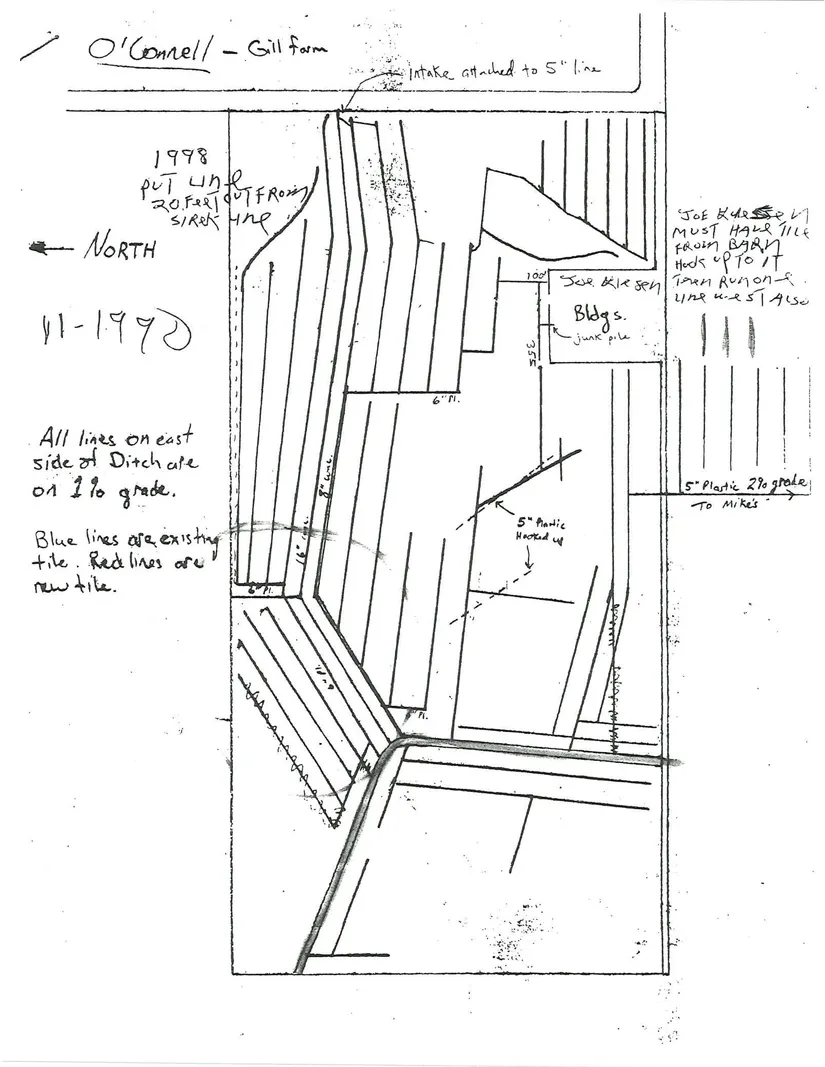 O'Connell - Gill farm
Intake attached to 5" line
1998
PUT LINE
20 FEET OUT FROM
LINE
NORTH
11-1990
All lines on east
side of Ditch are
on 1% grade.
Blue lines are existing
tile. Red lines are
new tile.
JOE
MUST HAVE TILE
FROM BARN
HOOK UP TO IT
THEN RUN ONE
LINE WEST ALSO
100'
JOE
Bldgs.
junk pile
355
6" Pl.
8" conc.
16" conc.
6" Pl.
5" Plastic
Hooked up
5" Plastic 2% grade
To Mike's
Pl.